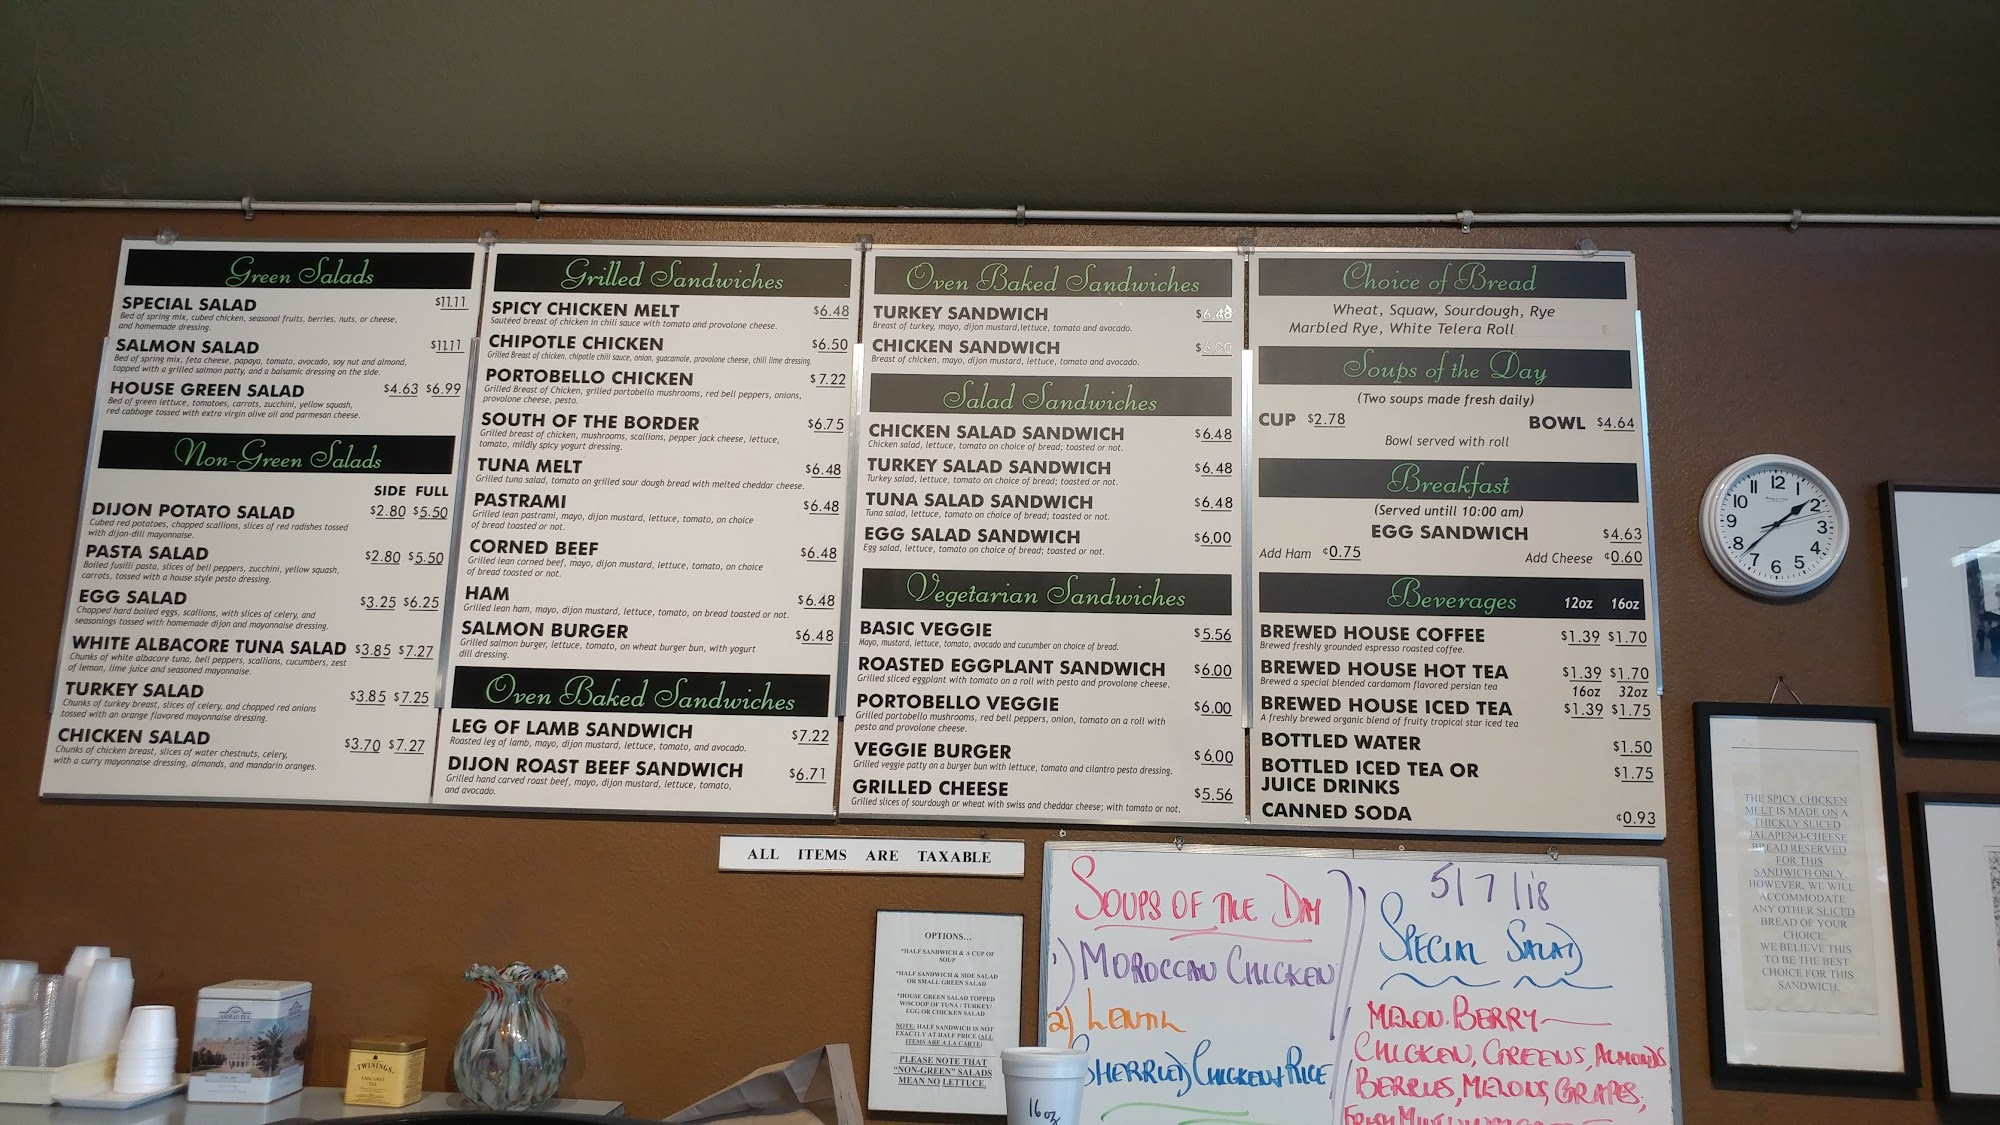 Green Salads
SPECIAL SALAD $11.11
Bed of spring mix, cubed chicken, seasonal fruits, berries, nuts, or cheese,
and homemade dressing.
SALMON SALAD $11.11
Bed of spring mix, feta cheese, papaya, tomato, avocado, soy nut and almond,
topped with a grilled salmon patty, and a balsamic dressing on the side.
HOUSE GREEN SALAD $4.63 $6.99
Bed of green lettuce, tomatoes, carrots, zucchini, yellow squash,
red cabbage tossed with extra virgin olive oil and parmesan cheese.
Non-Green Salads
SIDE FULL
DIJON POTATO SALAD $2.80 $5.50
Cubed red potatoes, chopped scallions, slices of red radishes tossed
with dijon-dill mayonnaise.
PASTA SALAD $2.80 $5.50
Boiled fusilli pasta, slices of bell peppers, zucchini, yellow squash,
carrots, tossed with a house style pesto dressing.
EGG SALAD $3.25 $6.25
Chopped hard boiled eggs, scallions, with slices of celery, and
seasonings tossed with homemade dijon and mayonnaise dressing.
WHITE ALBACORE TUNA SALAD $3.85 $7.27
Chunks of white albacore tuna, bell peppers, scallions, cucumbers, zest
of lemon, lime juice and seasoned mayonnaise.
TURKEY SALAD $3.85 $7.25
Chunks of turkey breast, slices of celery, and chopped red onions
tossed with an orange flavored mayonnaise dressing.
CHICKEN SALAD $3.70 $7.27
Chunks of chicken breast, slices of water chestnuts, celery,
with a curry mayonnaise dressing, almonds, and mandarin oranges.
Grilled Sandwiches
SPICY CHICKEN MELT $6.48
Sautéed breast of chicken in chili sauce with tomato and provolone cheese.
CHIPOTLE CHICKEN $6.50
Grilled Breast of chicken, chipotle chili sauce, onion, guacamole, provolone cheese, chili lime dressing.
PORTOBELLO CHICKEN $7.22
Grilled Breast of Chicken, grilled portobello mushrooms, red bell peppers, onions,
provolone cheese, pesto.
SOUTH OF THE BORDER $6.75
Grilled breast of chicken, mushrooms, scallions, pepper jack cheese, lettuce,
tomato, mildly spicy yogurt dressing.
TUNA MELT $6.48
Grilled tuna salad, tomato on grilled sour dough bread with melted cheddar cheese.
PASTRAMI $6.48
Grilled lean pastrami, mayo, dijon mustard, lettuce, tomato, on choice
of bread toasted or not.
CORNED BEEF $6.48
Grilled lean corned beef, mayo, dijon mustard, lettuce, tomato, on choice
of bread toasted or not.
HAM $6.48
Grilled lean ham, mayo, dijon mustard, lettuce, tomato, on bread toasted or not.
SALMON BURGER $6.48
Grilled salmon burger, lettuce, tomato, on wheat burger bun, with yogurt
dill dressing.
Oven Baked Sandwiches
LEG OF LAMB SANDWICH $7.22
Roasted leg of lamb, mayo, dijon mustard, lettuce, tomato, and avocado.
DIJON ROAST BEEF SANDWICH $6.71
Grilled hand carved roast beef, mayo, dijon mustard, lettuce, tomato,
and avocado.
Oven Baked Sandwiches
TURKEY SANDWICH $6.48
Breast of turkey, mayo, dijon mustard,lettuce, tomato and avocado.
CHICKEN SANDWICH
Breast of chicken, mayo, dijon mustard, lettuce, tomato and avocado.
Salad Sandwiches
CHICKEN SALAD SANDWICH $6.48
Chicken salad, lettuce, tomato on choice of bread; toasted or not.
TURKEY SALAD SANDWICH $6.48
Turkey salad, lettuce, tomato on choice of bread; toasted or not.
TUNA SALAD SANDWICH $6.48
Tuna salad, lettuce, tomato on choice of bread; toasted or not.
EGG SALAD SANDWICH $6.00
Egg salad, lettuce, tomato on choice of bread; toasted or not.
Vegetarian Sandwiches
BASIC VEGGIE $5.56
Mayo, mustard, lettuce, tomato, avocado and cucumber on choice of bread.
ROASTED EGGPLANT SANDWICH $6.00
Grilled sliced eggplant with tomato on a roll with pesto and provolone cheese.
PORTOBELLO VEGGIE $6.00
Grilled portobello mushrooms, red bell peppers, onion, tomato on a roll with
pesto and provolone cheese.
VEGGIE BURGER $6.00
Grilled veggie patty on a burger bun with lettuce, tomato and cilantro pesto dressing.
GRILLED CHEESE $5.56
Grilled slices of sourdough or wheat with swiss and cheddar cheese; with tomato or not.
Choice of Bread
Wheat, Squaw, Sourdough, Rye
Marbled Rye, White Telera Roll
Soups of the Day
(Two soups made fresh daily)
CUP $2.78 BOWL $4.64
Bowl served with roll
Breakfast
(Served untill 10:00 am)
EGG SANDWICH $4.63
Add Ham ¢0.75 Add Cheese ¢0.60
Beverages 12oz 16oz
BREWED HOUSE COFFEE $1.39 $1.70
Brewed freshly grounded espresso roasted coffee.
BREWED HOUSE HOT TEA $1.39 $1.70
Brewed a special blended cardamom flavored persian tea
16oz 32oz
BREWED HOUSE ICED TEA $1.39 $1.75
A freshly brewed organic blend of fruity tropical star iced tea
BOTTLED WATER $1.50
BOTTLED ICED TEA OR
JUICE DRINKS $1.75
CANNED SODA ¢0.93
12 1 2 3 4 5 6 7 8 9 10 11
ALL ITEMS ARE TAXABLE
OPTIONS...
*HALF SANDWICH & A CUP OF
SOUP
*HALF SANDWICH & SIDE SALAD
OR SMALL GREEN SALAD
*HOUSE GREEN SALAD TOPPED
W/SCOOP OF TUNA / TURKEY/
EGG OR CHICKEN SALAD
NOTE: HALF SANDWICH IS NOT
EXACTLY AT HALF PRICE (ALL
ITEMS ARE A LA CARTE)
PLEASE NOTE THAT
"NON-GREEN" SALADS
MEAN NO LETTUCE.
SOUPS OF THE DAY
1) MOROCCAN CHICKEN
2) LENTIL
SHERRIED CHICKEN & RICE
5/7/18
SPECIAL SALAD
MELON.BERRY
CHICKEN, GREENS, ALMONDS
BERRIES, MELONS, GRAPES,
THE SPICY CHICKEN
MELT IS MADE ON A
THICKLY SLICED
JALAPENO-CHEESE
BREAD RESERVED
FOR THIS
SANDWICH ONLY.
HOWEVER, WE WILL
ACCOMMODATE
ANY OTHER SLICED
BREAD OF YOUR
CHOICE.
WE BELIEVE THIS
TO BE THE BEST
CHOICE FOR THIS
SANDWICH.
AHMAD TEA
TWININGS
EARL GREY
TEA
16oz